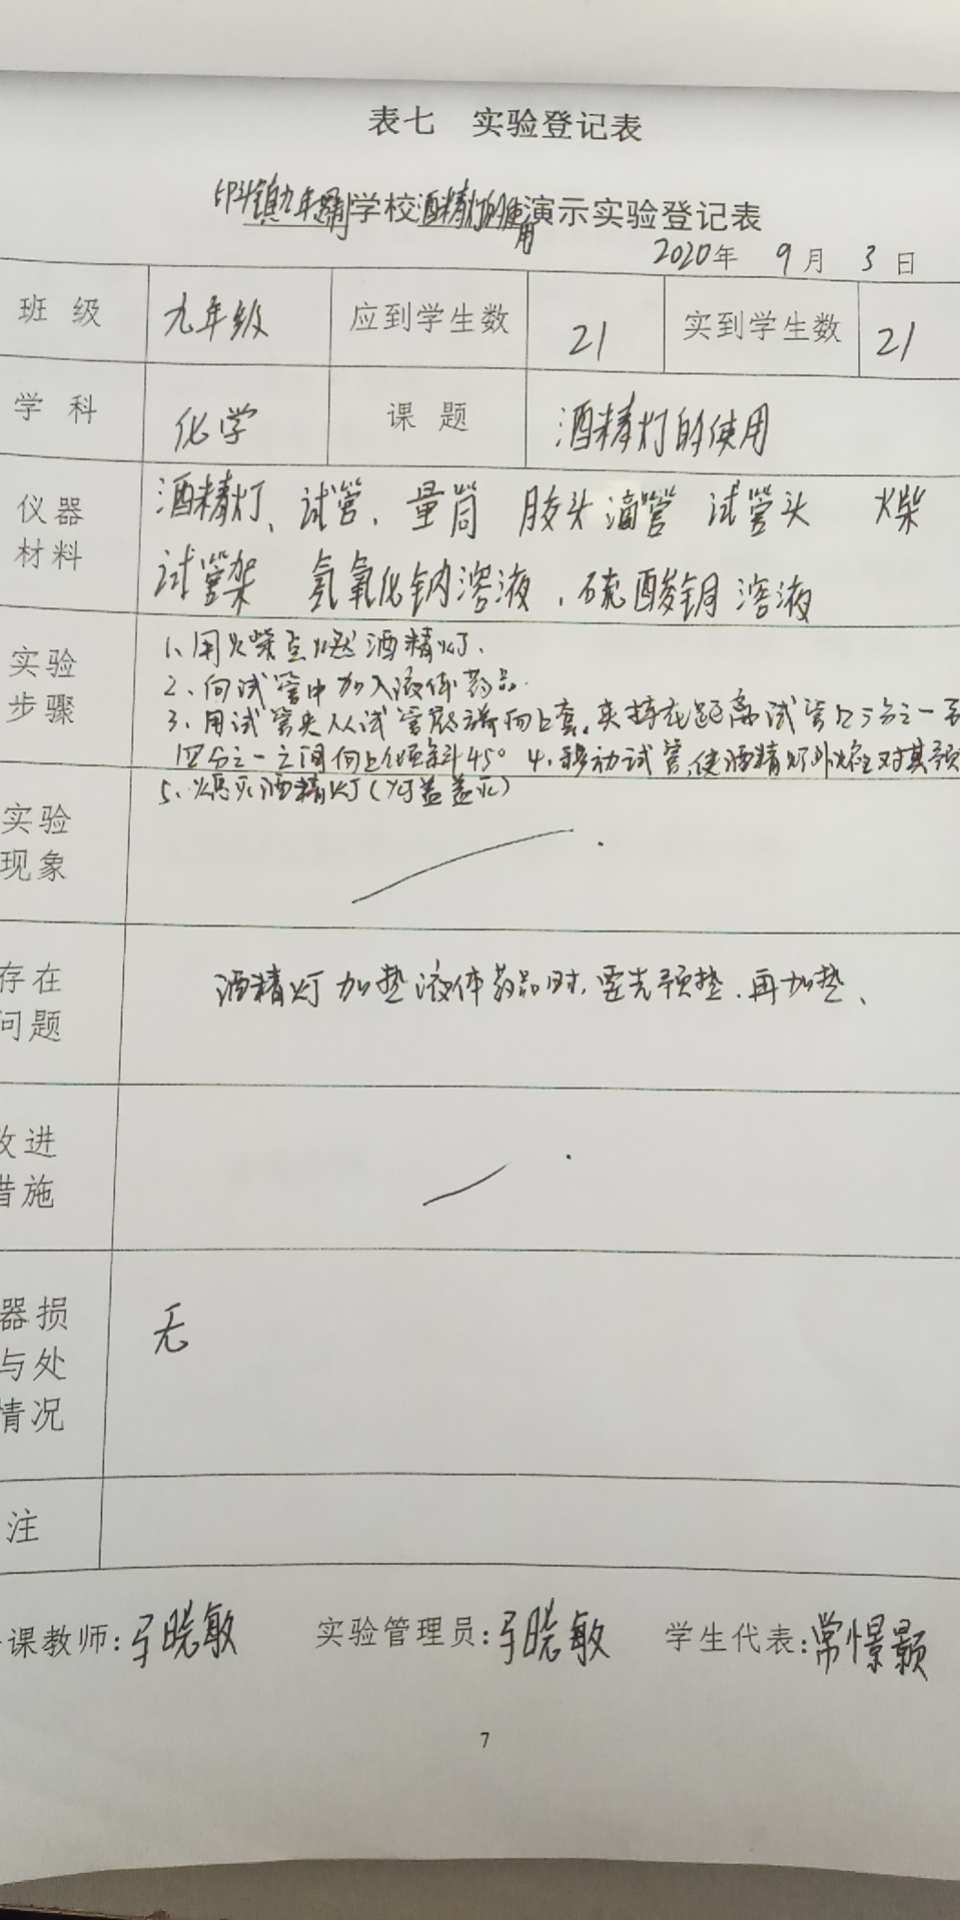 表七 实验登记表
镇九年制学校酒精灯的使用演示实验登记表
2020年 9月 3日
班级 九年级 应到学生数 21 实到学生数 21
学科 化学 课题 酒精灯的使用
仪器材料
酒精灯、试管、量筒 胶头滴管 试管头 火柴
试管架 氢氧化钠溶液、硫酸铜溶液
实验步骤
1、用火柴点燃酒精灯.
2、向试管中加入液体药品.
3、用试管夹从试管底端向上套,夹持在距离试管口三分之一至
四分之一之间向上倾斜45° 4、移动试管,使酒精灯外焰对其预
5、熄灭酒精灯(灯盖盖灭)
实验现象
存在问题
酒精灯加垫液体药品时,要先预垫.再加垫、
改进措施
器损 无
与处
情况
注
课教师: 晓敏 实验管理员: 晓敏 学生代表:常憬颢
7